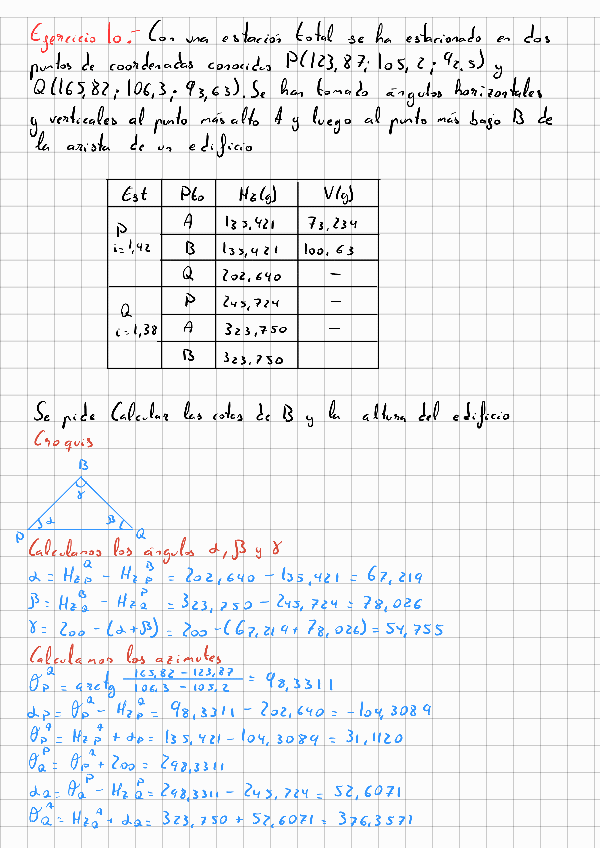 Ejercicio 10.- Con una estación total se ha estacionado en dos
puntos de coordenadas conocidas P(123,87; 105,2; 92,5) y
Q(165,82; 106,3; 93,63). Se han tomado ángulos horizontales
y verticales al punto más alto A y luego al punto más bajo B de
la arista de un edificio
Est Pto Hz(g) V(g)
P i=1,42 A 135,421 73,234
B 135,421 100,63
Q 202,640 —
Q i=1,38 P 245,724 —
A 323,750 —
B 323,750
Se pide Calcular las cotas de B y la altura del edificio
Croquis
B
γ
α β
P Q
Calculamos los ángulos α, β y γ
α = Hz_P^Q - Hz_P^B = 202,640 - 135,421 = 67,219
β = Hz_Q^B - Hz_Q^P = 323,750 - 245,724 = 78,026
γ = 200 - (α+β) = 200 - (67,219 + 78,026) = 54,755
Calculamos los azimutes
θ_P^Q = arctg (165,82 - 123,87)/(106,3 - 105,2) = 98,3311
α_P = θ_P^Q - Hz_P^Q = 98,3311 - 202,640 = -104,3089
θ_P^A = Hz_P^A + α_P = 135,421 - 104,3089 = 31,1120
θ_Q^P = θ_P^Q + 200 = 298,3311
α_Q = θ_Q^P - Hz_Q^P = 298,3311 - 245,724 = 52,6071
θ_Q^A = Hz_Q^A + α_Q = 323,750 + 52,6071 = 376,3571